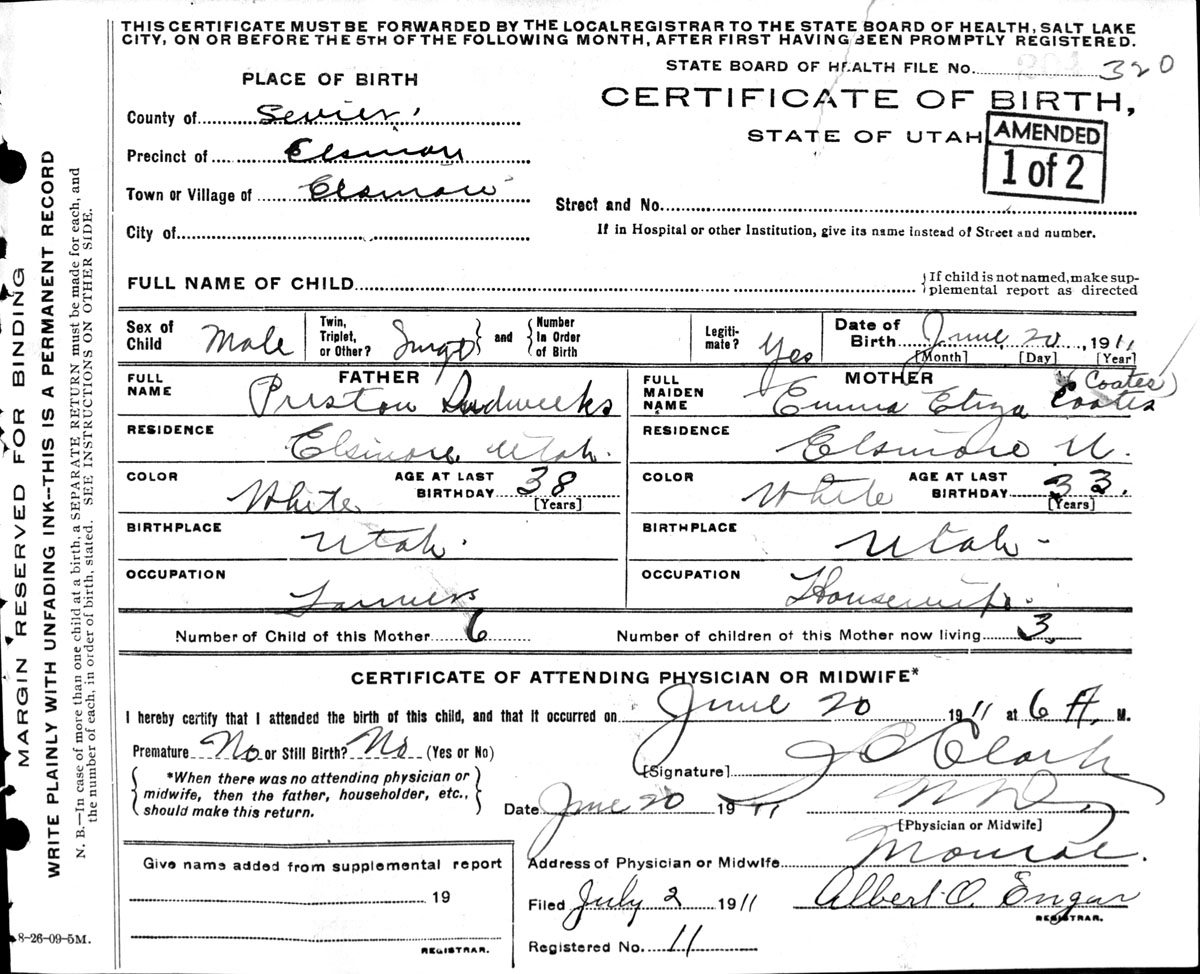 THIS CERTIFICATE MUST BE FORWARDED BY THE LOCAL REGISTRAR TO THE STATE BOARD OF HEALTH, SALT LAKE
CITY, ON OR BEFORE THE 5TH OF THE FOLLOWING MONTH, AFTER FIRST HAVING BEEN PROMPTLY REGISTERED.
STATE BOARD OF HEALTH FILE No. 320
PLACE OF BIRTH
CERTIFICATE OF BIRTH,
STATE OF UTAH
AMENDED
1 of 2
County of Sevier
Precinct of Elsinore
Town or Village of Elsinore
Street and No.
City of
If in Hospital or other Institution, give its name instead of Street and number.
FULL NAME OF CHILD
{If child is not named, make sup-
plemental report as directed
Sex of Child Male
Twin, Triplet, or Other? and Number In Order of Birth
Legiti-mate? Yes
Date of Birth June 20, 1911
[Month] [Day] [Year]
FATHER
FULL NAME Preston
RESIDENCE Elsinore Utah.
COLOR White AGE AT LAST BIRTHDAY 38
[Years]
BIRTHPLACE Utah.
OCCUPATION Farmer
MOTHER
(Coates)
FULL MAIDEN NAME Emma Eliza Coates
RESIDENCE Elsinore U.
COLOR White AGE AT LAST BIRTHDAY 33.
[Years]
BIRTHPLACE Utah -
OCCUPATION Housewife.
Number of Child of this Mother 6 Number of children of this Mother now living 3
CERTIFICATE OF ATTENDING PHYSICIAN OR MIDWIFE*
I hereby certify that I attended the birth of this child, and that it occurred on June 20 1911 at 6 A. M.
Premature No or Still Birth? No (Yes or No)
*When there was no attending physician or
midwife, then the father, householder, etc.,
should make this return.
[Signature] Clark
Date June 20 1911
[Physician or Midwife]
Address of Physician or Midwife Monroe.
Filed July 2 1911 Albert O. Engar
REGISTRAR.
Registered No. 11
Give name added from supplemental report
19
REGISTRAR.
8-26-09-5M.
MARGIN RESERVED FOR BINDING
WRITE PLAINLY WITH UNFADING INK--THIS IS A PERMANENT RECORD
N. B.—In case of more than one child at a birth, a SEPARATE RETURN must be made for each, and
the number of each, in order of birth, stated. SEE INSTRUCTIONS ON OTHER SIDE.